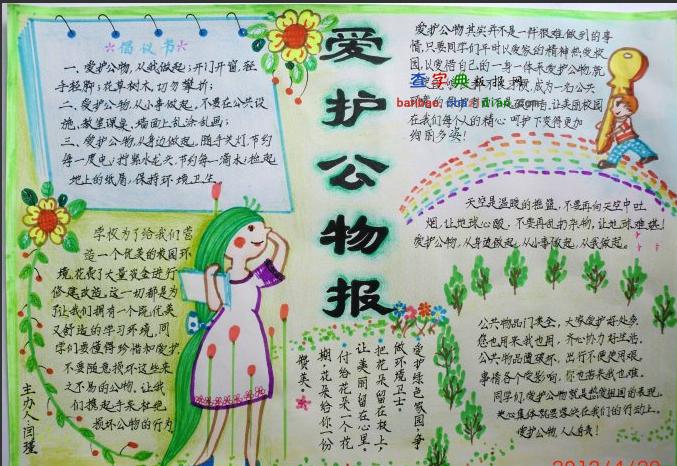 *倡议书*
一、爱护公物,从我做起;开门开窗,轻
手轻脚;花草树木,切勿攀折;
二、爱护公物,从小事做起,不要在公共设
施、教室课桌、墙面上乱涂乱画;
三、爱护公物,从身边做起,随手关灯,节约
每一度电;拧紧水龙头,节约每一滴水;捡起
地上的纸屑,保持环境卫生。
爱护公物报
爱护公物其实并不是一件很难做到的事
情,只要同学们平时以爱家的精神热爱校
在我们每个人的精心呵护下变得更加
绚丽多姿!
查字典 板报网
天空是温暖的摇篮,不要再向天空中吐
烟,让地球心酸,不要再乱扔杂物,让地球难堪!
爱护公物,从身边做起,从小事做起,从我做起。
学校为了给我们营
造一个优美的校园环
境,花费了大量资金进行
修建改造,这一切都是为
了让我们拥有一个既优美
又舒适的学习环境,同
学们要懂得珍惜和爱护,
不要随意损坏这些来
之不易的公物,让我
们携起手来杜绝
损坏公物的行为
主办人闫瑾
爱护绿色氛围,争
做环境卫士,
把花朵留在枝上,
让美丽留在心里,
付给花朵一个花
期,花朵给你一份
赞美。
公共物品门类全,大家爱护好处多。
您也用来我也用,齐心协力好生活。
公共物品遭破坏,出行不便使用艰。
事情各个受影响,你也苦来我也难。
同学们,爱护公物就是热爱祖国的表现,
关心集体就要落实在我们的行动上。
爱护公物,人人有责!